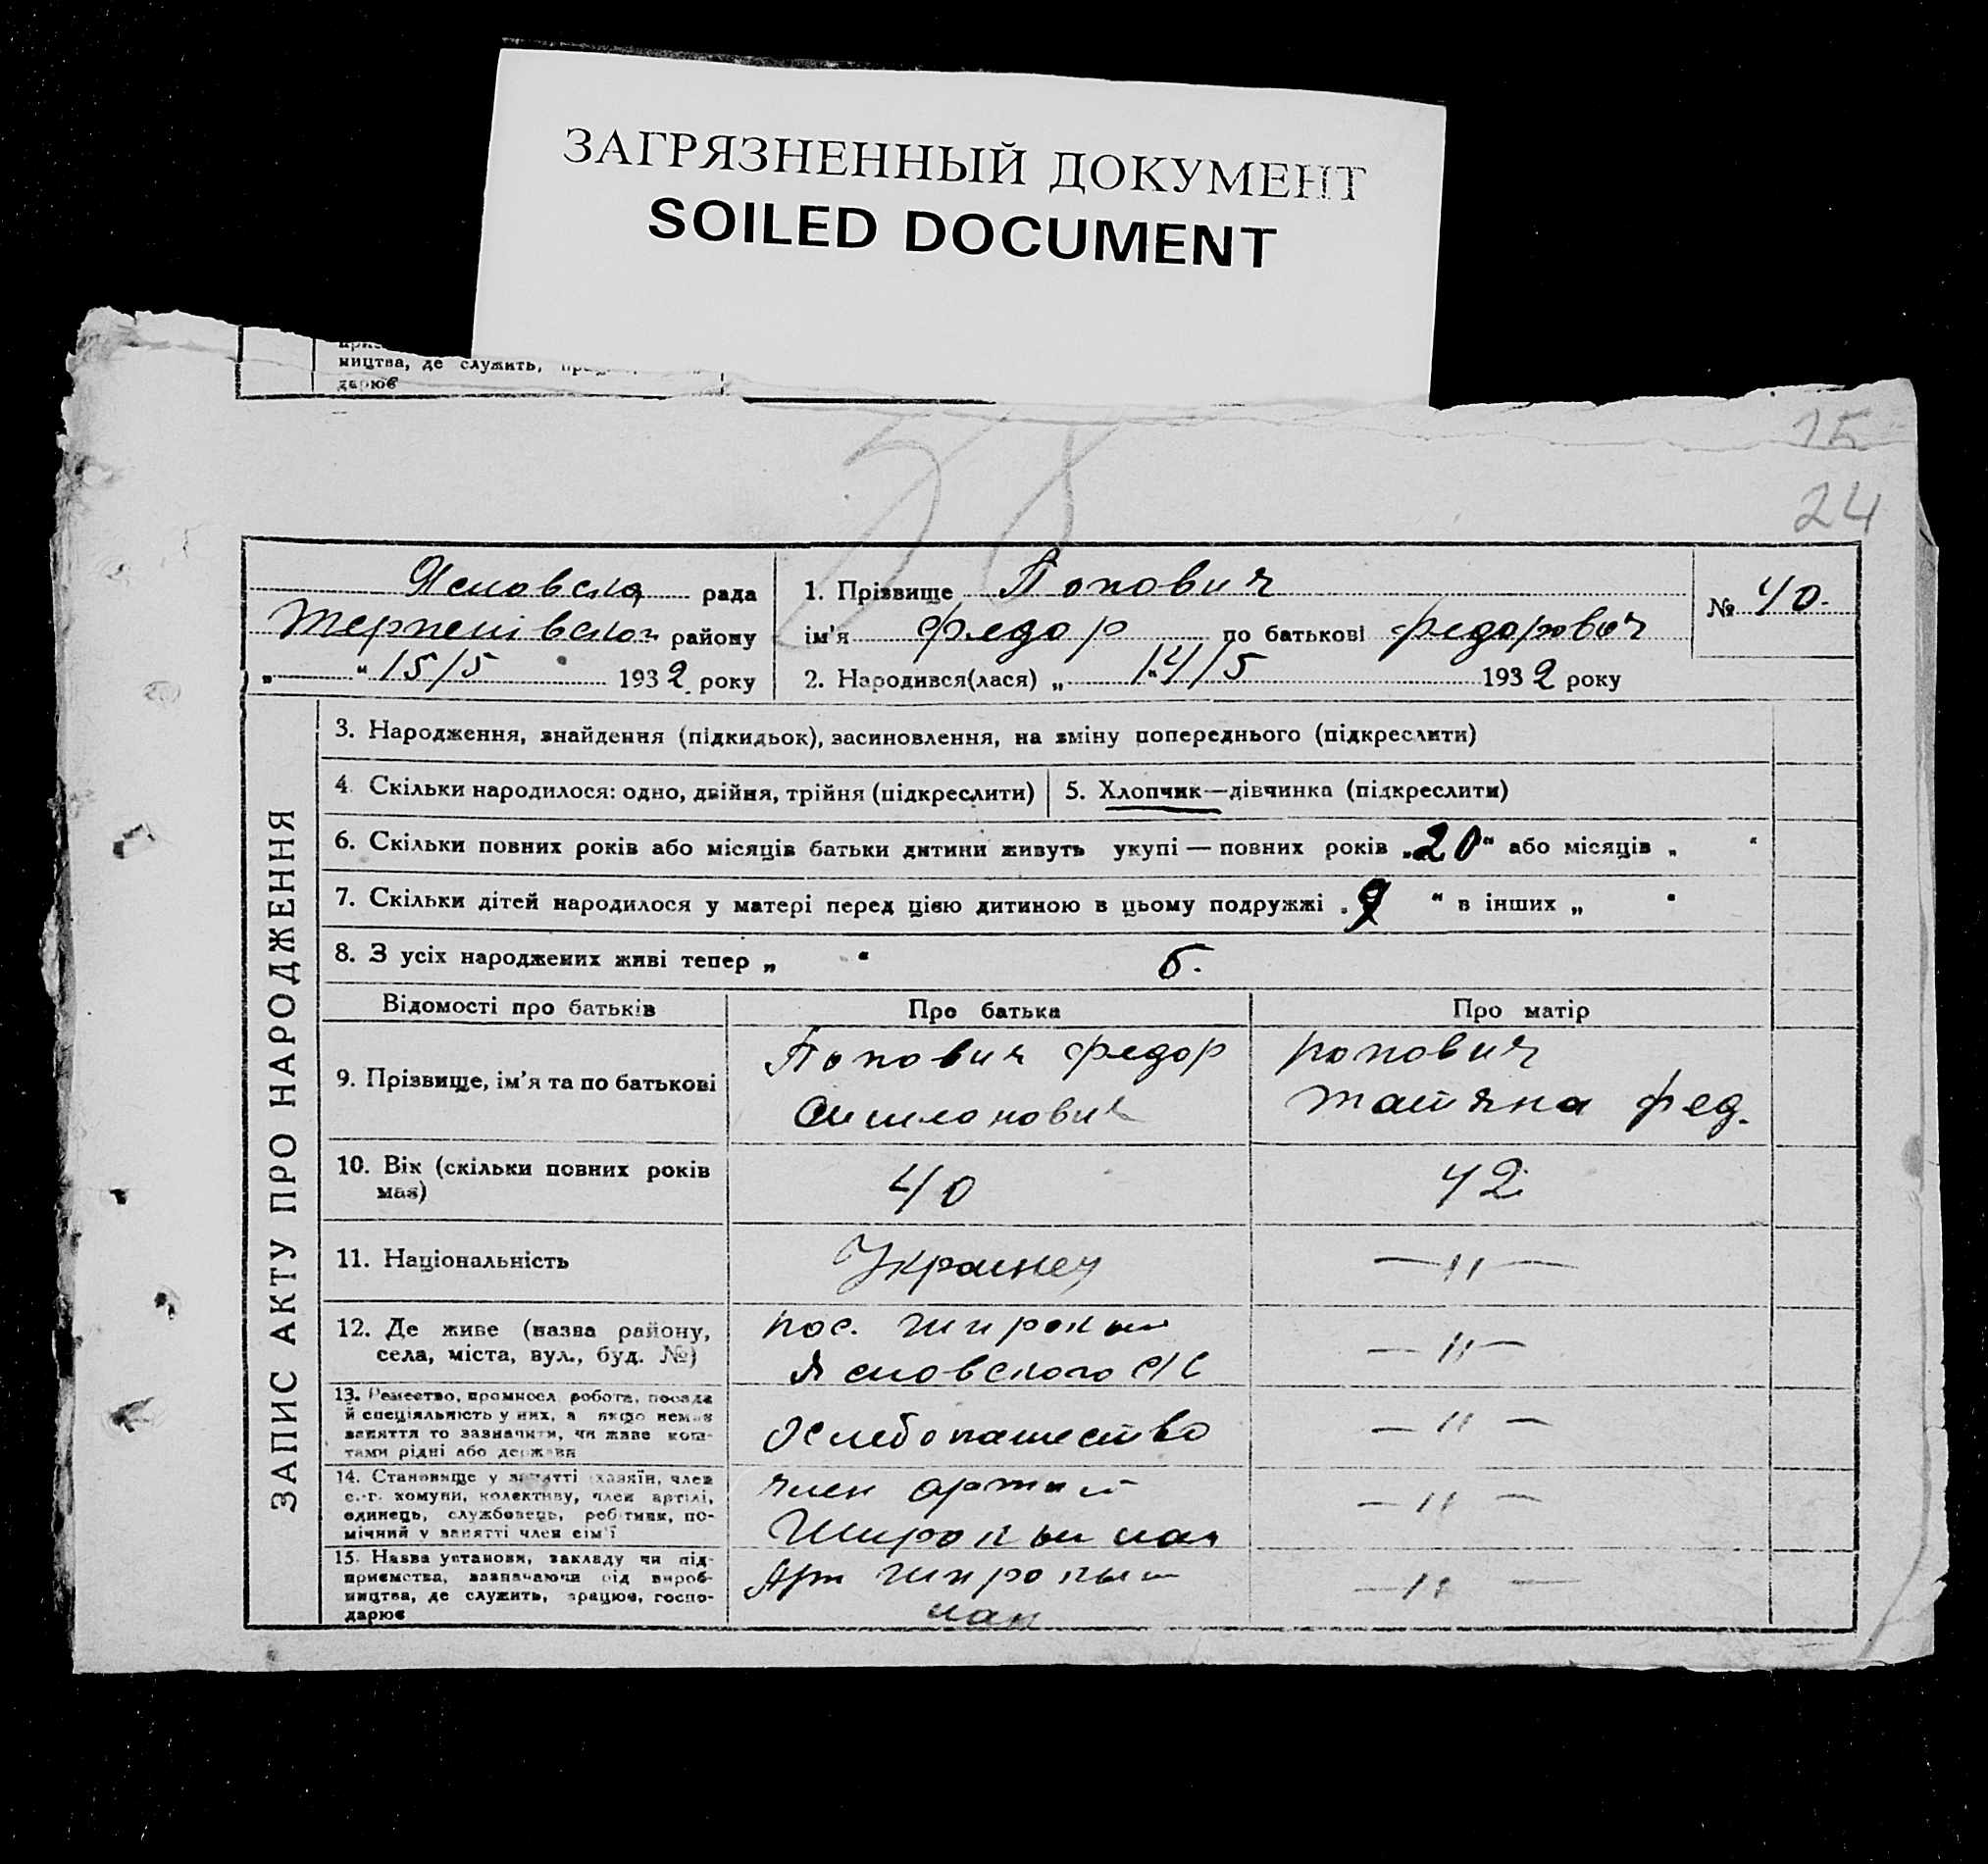 ЗАГРЯЗНЕННЫЙ ДОКУМЕНТ
SOILED DOCUMENT
ництва, де служить,
дарює
58
15
24
рада
району
„ “ 15/5 1932 року
1. Прізвище Попович
ім'я Федор по батькові Федорович
2. Народився(лася) „ 14/5 1932 року
№ 40.
ЗАПИС АКТУ ПРО НАРОДЖЕННЯ
3. Народження, знайдення (підкидьок), засиновлення, на зміну попереднього (підкреслити)
4. Скільки народилося: одно, двійня, трійня (підкреслити)
5. Хлопчик—дівчинка (підкреслити)
6. Скільки повних років або місяців батьки дитини живуть укупі — повних років „20“ або місяців „ “
7. Скільки дітей народилося у матері перед цією дитиною в цьому подружжі „9 “ в інших „ “
8. З усіх народжених живі тепер „ “ 6.
Відомості про батьків
Про батька
Про матір
9. Прізвище, ім'я та по батькові
Попович Федор
Попович
Татяна Фед.
10. Вік (скільки повних років
має)
40
42
11. Національність
Украинец
—〃—
12. Де живе (назва району,
села, міста, вул., буд. №)
пос. Широкий
Ясновского с/с
—〃—
13. Ремество, промисел, робота, посада
й спеціяльність у них, а якщо немає
заняття то зазначити, чи живе кош-
тами рідні або держави
Хлебопашество
—〃—
14. Становище у занятті (хазяїн, член
с.-г. комуни, колективу, член артілі,
одинець, службовець, робітник, по-
мічний у занятті член сім'ї
член артили
Широкый лан
—〃—
15. Назва установи, закладу чи під-
приємства, зазначаючи рід вироб-
ництва, де служить, працює, госпо-
дарює
Арт Широкый
лан
—〃—